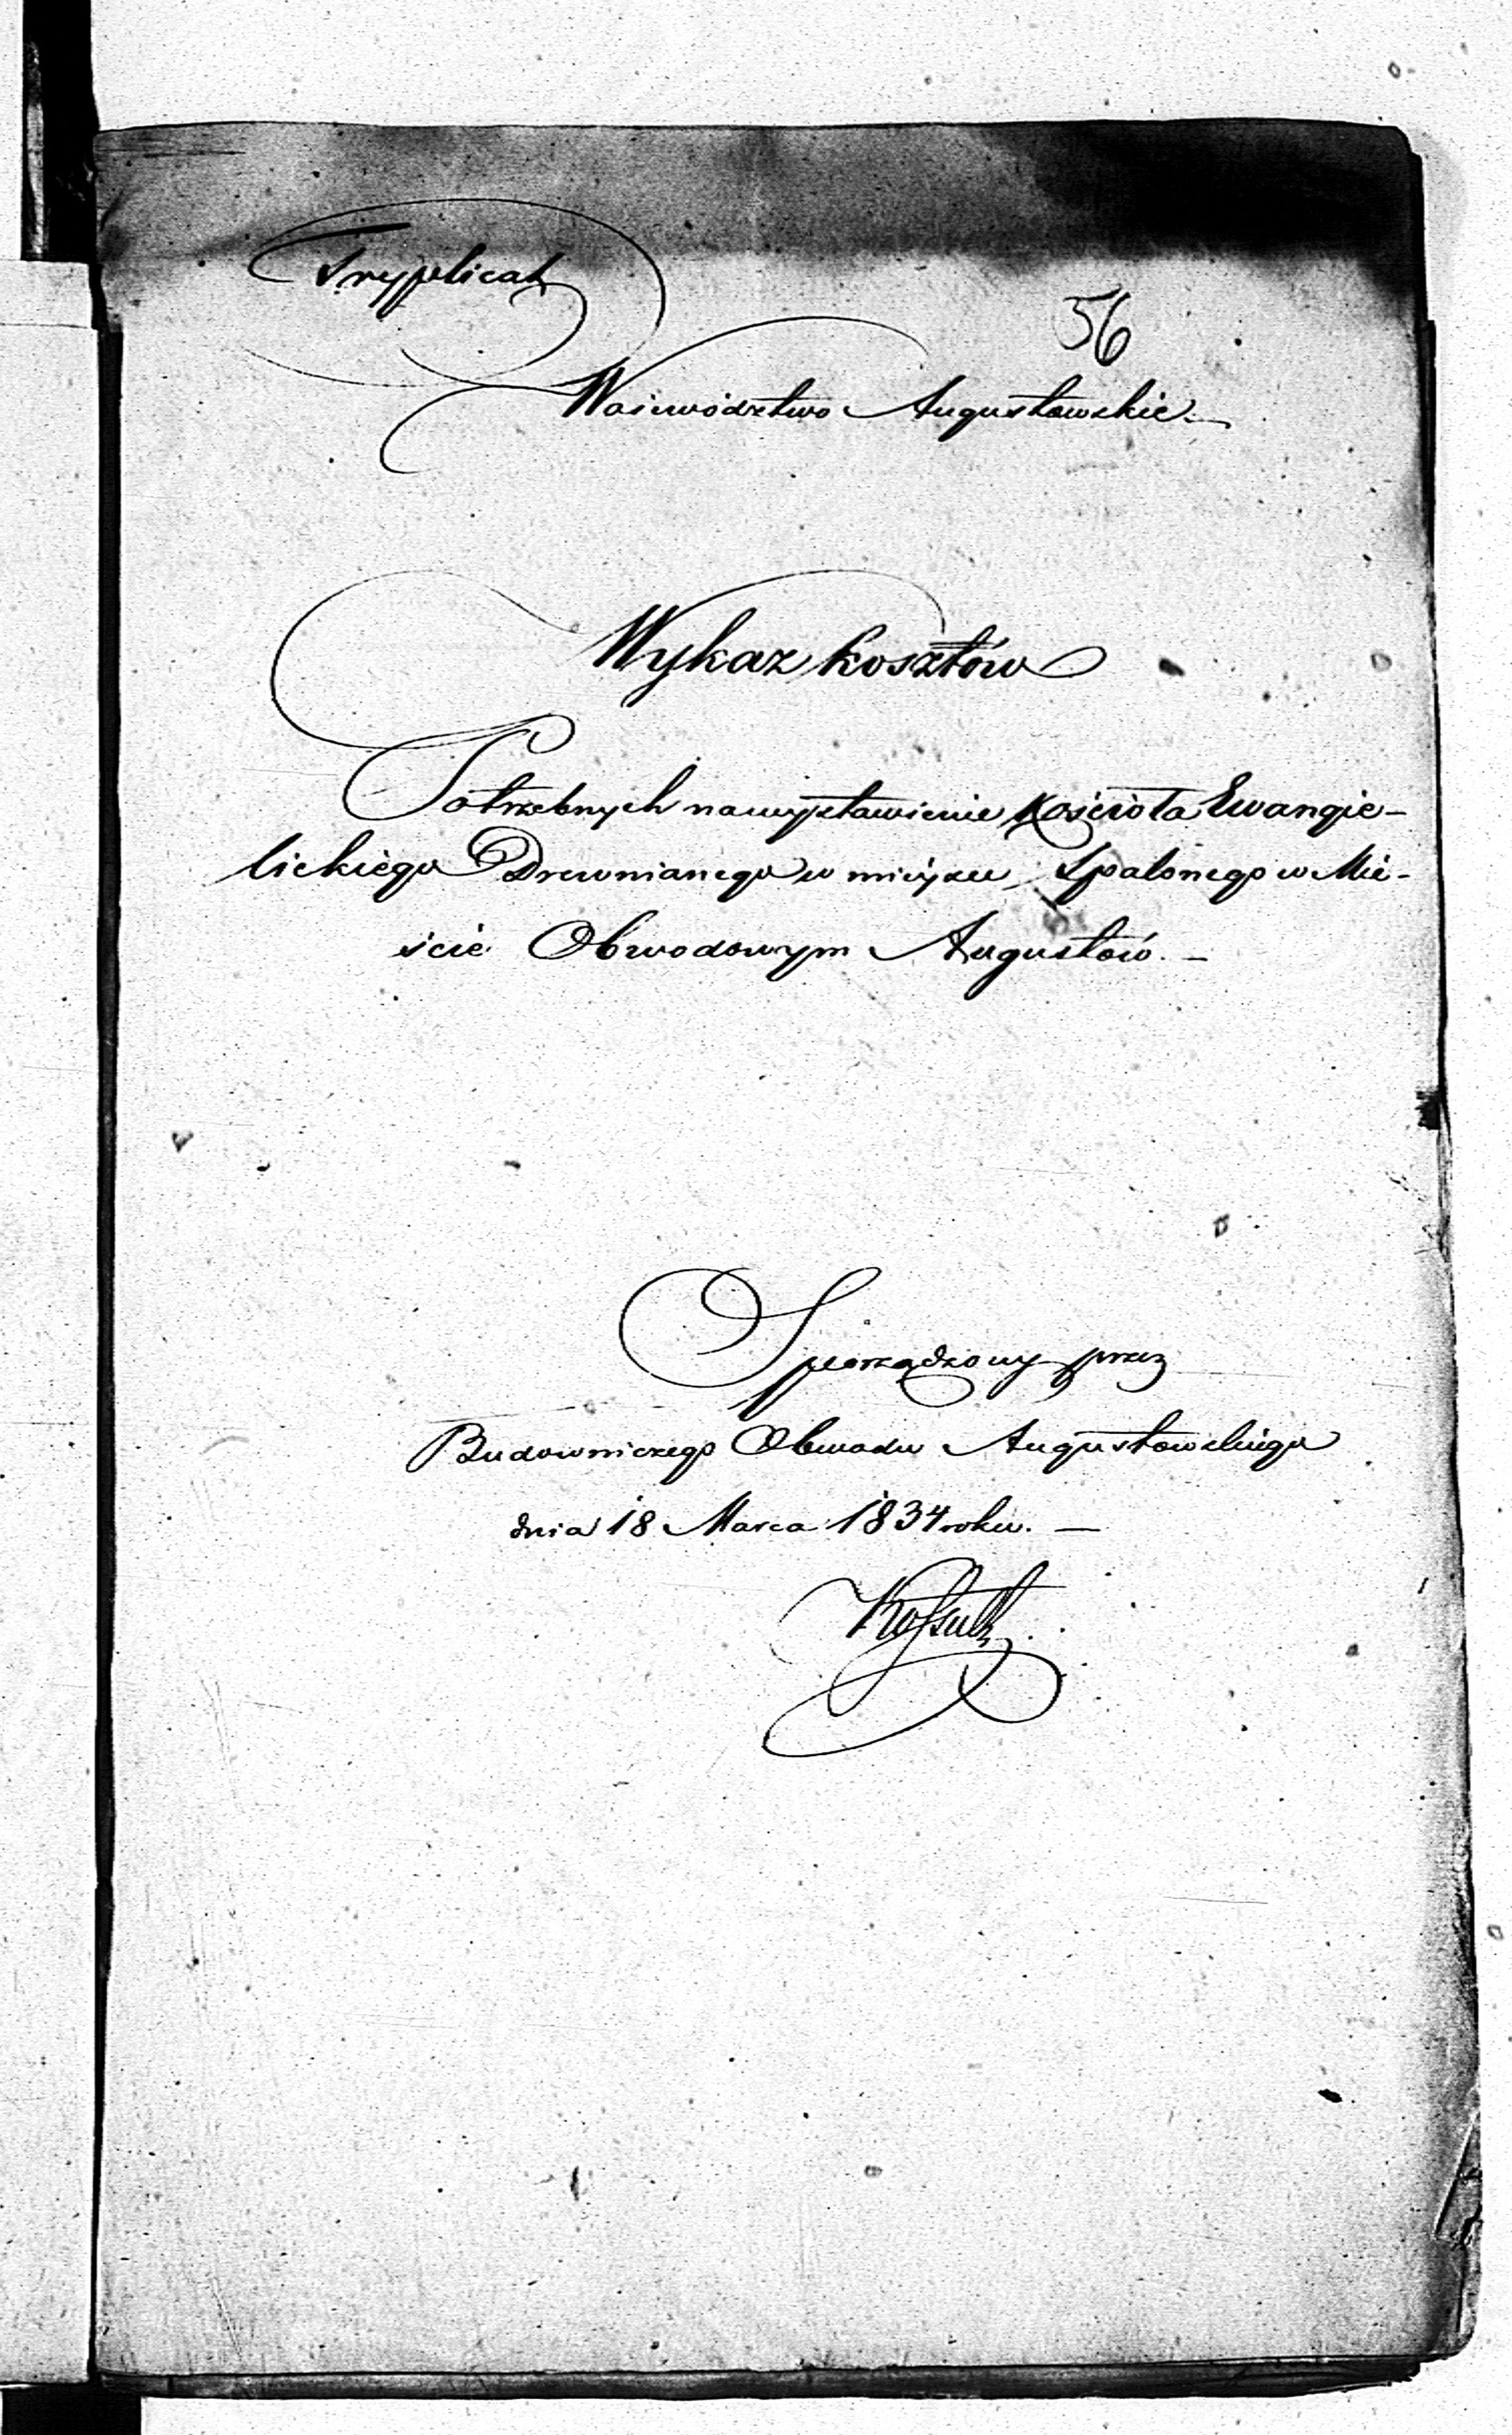 Tryplicat
56
Woiewództwo Augustowskie.
Wykaz kosztów
Potrzebnych na wystawienie Kościoła Ewangie-
lickiego Drewnianego w mieyscu Spalonego w Mie-
ście Obwodowym Augustów. -
Sporządzony przez
Budowniczego Obwodu Augustowskiego
dnia 18 Marca 1834 roku. —